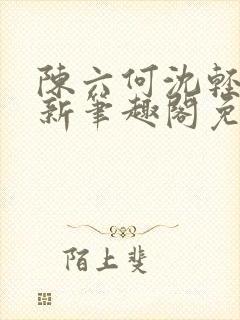 陳六何沈輕
新筆趣閣免
陌上斐